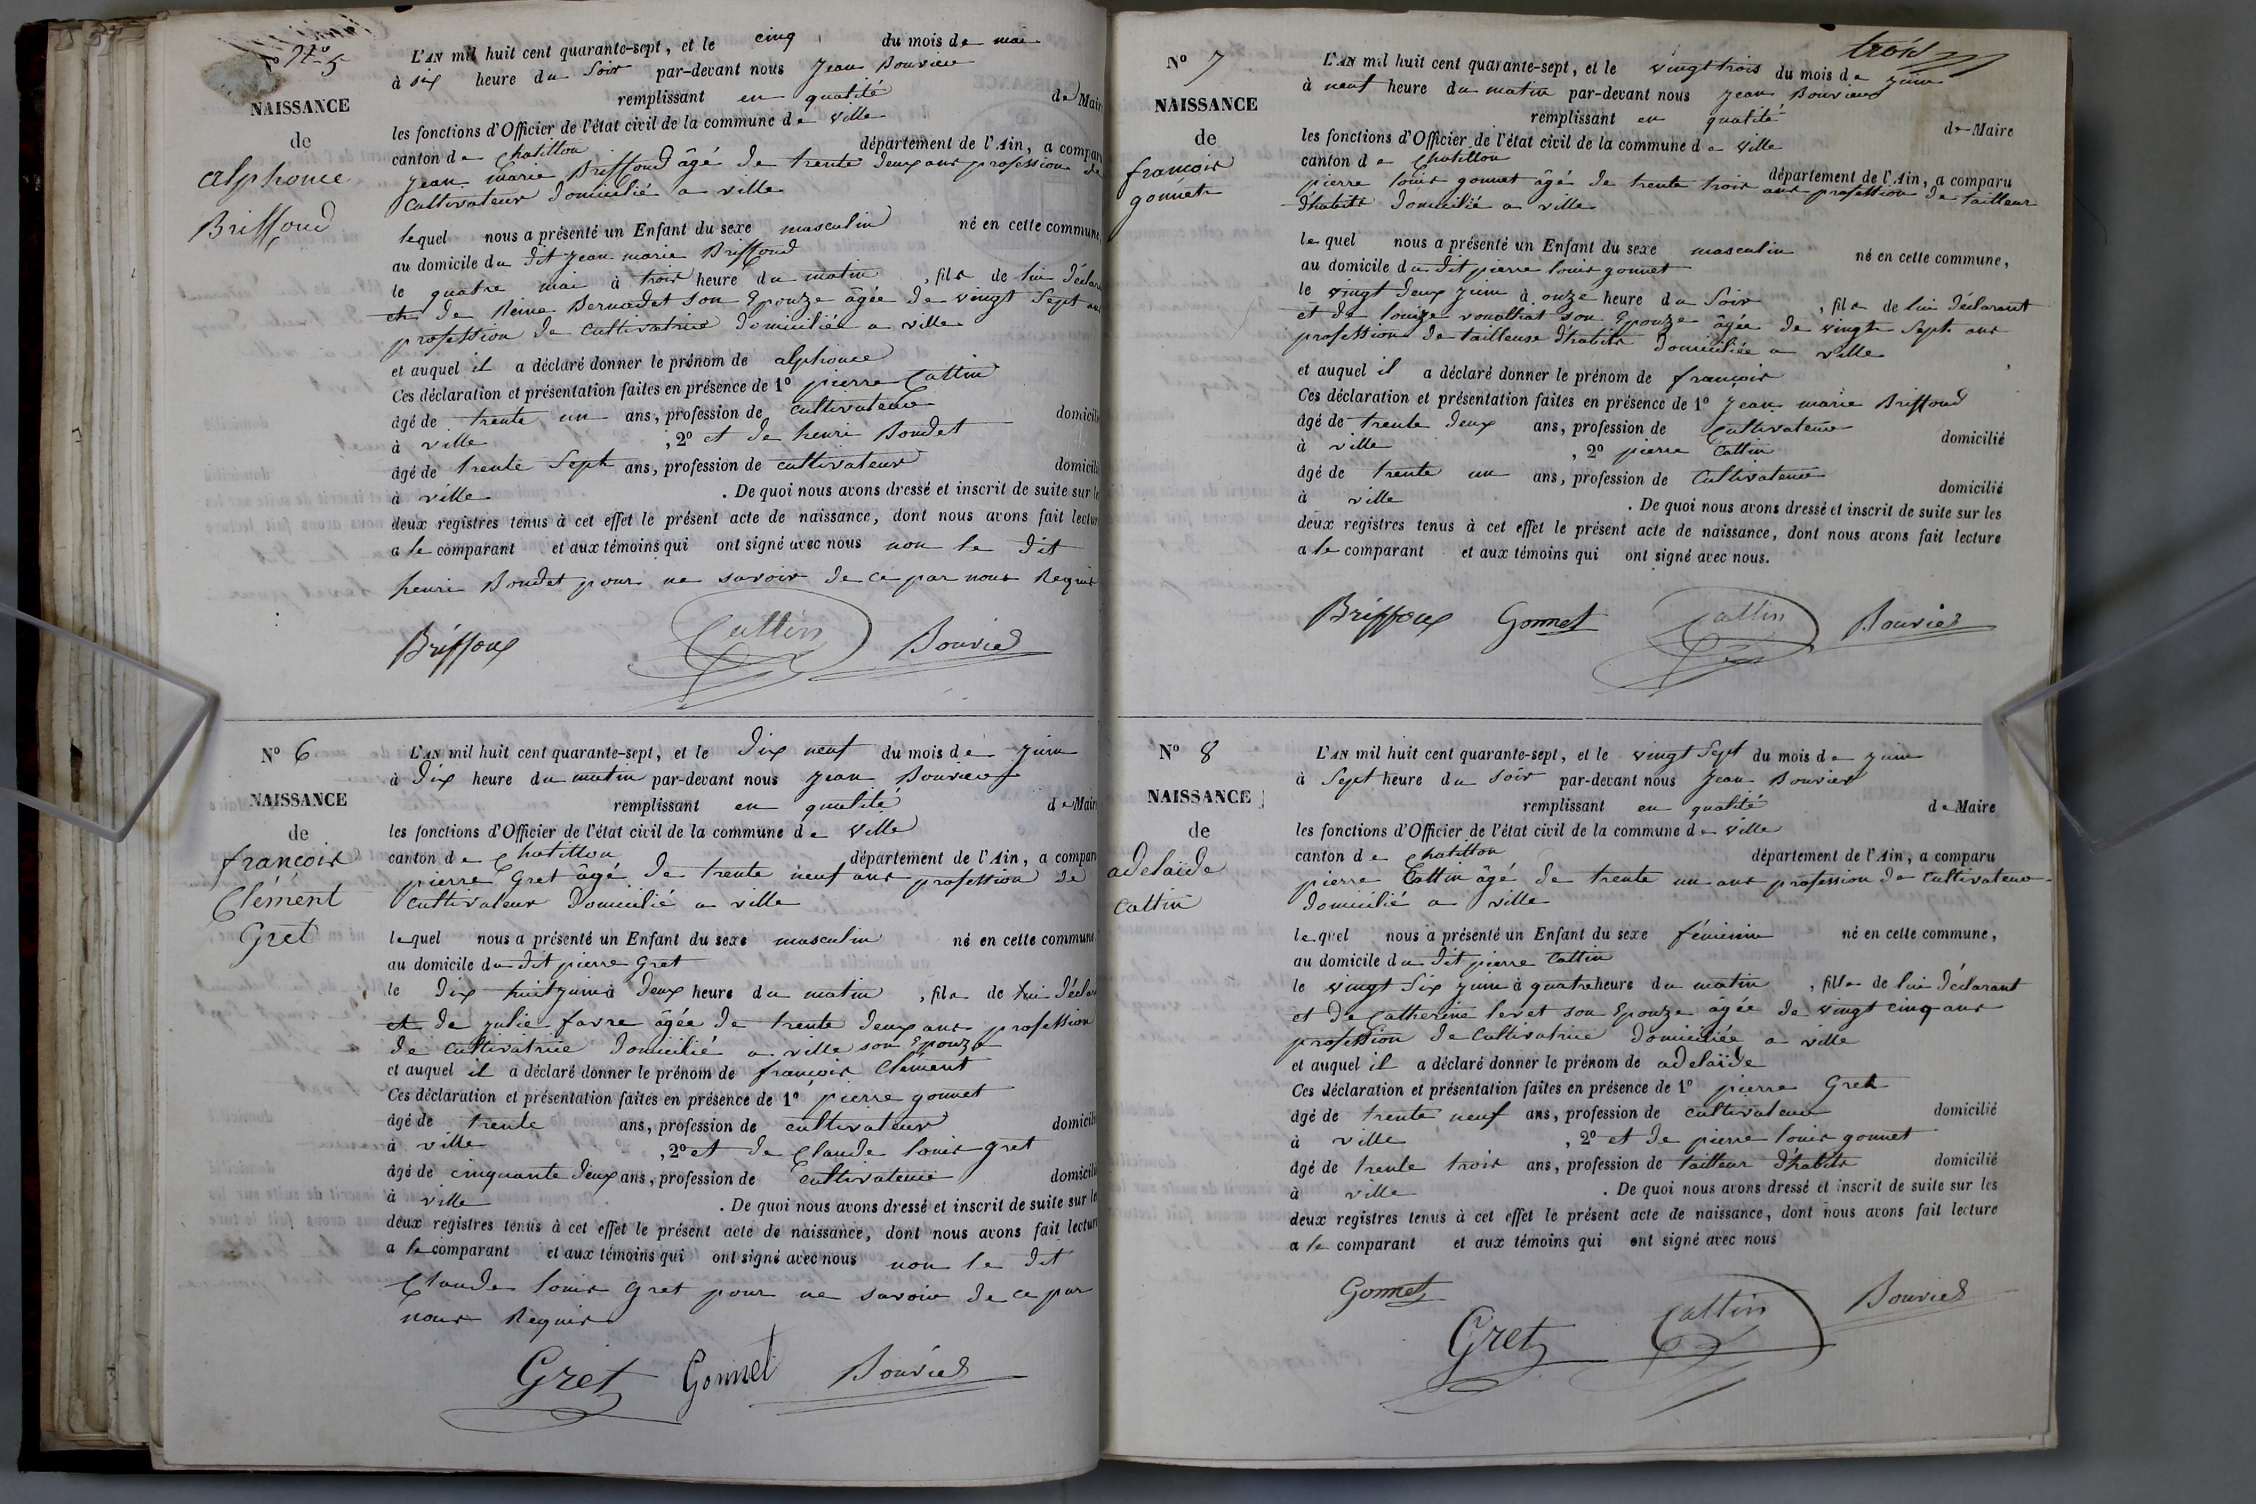 N° 5
NAISSANCE
de
alphonce
Briffoud
L'AN mil huit cent quarante-sept, et le cinq du mois de mai
à six heure du Soir par-devant nous Jean Bouvier
remplissant en qualité de Mair
les fonctions d'Officier de l'état civil de la commune de ville
canton de Chatillon département de l'Ain, a compar
Jean marie Briffoud âgé de trente deux ans profession de
Cultivateur domicilié a ville
lequel nous a présenté un Enfant du sexe masculin né en cette commune,
au domicile du dit Jean marie Briffoud
le quatre mai à trois heure du matin, fils de lui déclar
et de Reine Bernadet son Epouze âgée de vingt Sept ans
profession de Cultivatrice domiciliée a ville
et auquel il a déclaré donner le prénom de alphonce
Ces déclaration et présentation faites en présence de 1° pierre Cattin
âgé de trente un ans, profession de cultivateur domicili
à ville, 2° et de henri Bondet
âgé de trente Sept ans, profession de cultivateur domicili
à ville. De quoi nous avons dressé et inscrit de suite sur le
deux registres tenus à cet effet le présent acte de naissance, dont nous avons fait lectur
a le comparant et aux témoins qui ont signé avec nous non le dit
henri Bondet pour ne savoir de ce par nous Requis
Briffoux Cattin Bouvier
N° 6
NAISSANCE
de
françois
Clément
Gret
L'AN mil huit cent quarante-sept, et le dix neuf du mois de Juin
à dix heure du matin par-devant nous Jean Bouvier
remplissant en qualité de Mair
les fonctions d'Officier de l'état civil de la commune de ville
canton de Chatillon département de l'Ain, a compar
pierre Gret âgé de trente neuf ans profession de
Cultivateur domicilié a ville
lequel nous a présenté un Enfant du sexe masculin né en cette commune
au domicile du dit pierre Gret
le dix huit juin à deux heure du matin, fils de lui décla
et de Julie favre âgée de trente deux ans profession
de Cultivatrice domicilié a ville son Epouze
et auquel il a déclaré donner le prénom de françois Clément
Ces déclaration et présentation faites en présence de 1° pierre gonnet
âgé de trente ans, profession de cultivateur domicili
à ville, 2° et de Claude louis gret
âgé de cinquante deux ans, profession de Cultivateur domicili
à ville. De quoi nous avons dressé et inscrit de suite sur le
deux registres tenus à cet effet le présent acte de naissance, dont nous avons fait lectur
a le comparant et aux témoins qui ont signé avec nous non le dit
Claude louis gret pour ne savoir de ce par
nous Requis
Gret Gonnet Bouvier
trois
N° 7
NAISSANCE
de
françois
gonnet
L'AN mil huit cent quarante-sept, et le vingt trois du mois de Juin
à neuf heure du matin par-devant nous Jean Bouvier
remplissant en qualité de Maire
les fonctions d'Officier de l'état civil de la commune de ville
canton de Chatillon département de l'Ain, a comparu
pierre louis gonnet âgé de trente trois ans profession de tailleur
d'habits domicilié a ville
lequel nous a présenté un Enfant du sexe masculin né en cette commune,
au domicile du dit pierre louis gonnet
le vingt deux Juin à onze heure du Soir, fils de lui déclarant
et de louize son Epouze âgée de vingt Sept ans
profession de tailleuse d'habits domiciliée a ville
et auquel il a déclaré donner le prénom de françois
Ces déclaration et présentation faites en présence de 1° Jean marie Briffoud
âgé de trente deux ans, profession de Cultivateur domicilié
à ville, 2° pierre Cattin
âgé de trente un ans, profession de Cultivateur domicilié
à ville. De quoi nous avons dressé et inscrit de suite sur les
deux registres tenus à cet effet le présent acte de naissance, dont nous avons fait lecture
a le comparant et aux témoins qui ont signé avec nous.
Briffoux Gonnet Cattin Bouvier
N° 8
NAISSANCE
de
adelaïde
Cattin
L'AN mil huit cent quarante-sept, et le vingt Sept du mois de Juin
à Sept heure du Soir par-devant nous Jean Bouvier
remplissant en qualité de Maire
les fonctions d'Officier de l'état civil de la commune de ville
canton de Chatillon département de l'Ain, a comparu
pierre Cattin âgé de trente un ans profession de Cultivateur
domicilié a ville
lequel nous a présenté un Enfant du sexe féminin né en cette commune,
au domicile du dit pierre Cattin
le vingt Six Juin à quatre heure du matin, fille de lui déclarant
et de Catherine levet son Epouze âgée de vingt cinq ans
profession de Cultivatrice domiciliée a ville
et auquel il a déclaré donner le prénom de adelaïde
Ces déclaration et présentation faites en présence de 1° pierre Gret
âgé de trente neuf ans, profession de cultivateur domicilié
à ville, 2° et de pierre louis gonnet
âgé de trente trois ans, profession de tailleur d'habits domicilié
à ville. De quoi nous avons dressé et inscrit de suite sur les
deux registres tenus à cet effet le présent acte de naissance, dont nous avons fait lecture
a le comparant et aux témoins qui ont signé avec nous
Gonnet Gret Cattin Bouvier